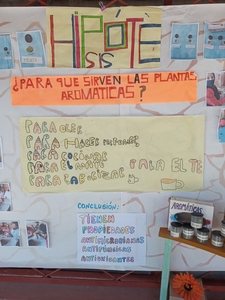 HIPÓTE
SIS
¿PARA QUE SIRVEN LAS PLANTAS
AROMATICAS?
PARA OLER
PARA HACER PERFUMES
PARA COCINAR
PARA EL MATE PARA EL TE
PARA
CONCLUSIÓN:
TIENEN
PROPIEDADES
ANTIMICROBIANAS
ANTIFÚNGICAS
ANTIOXIDANTES
AROMÁTICAS